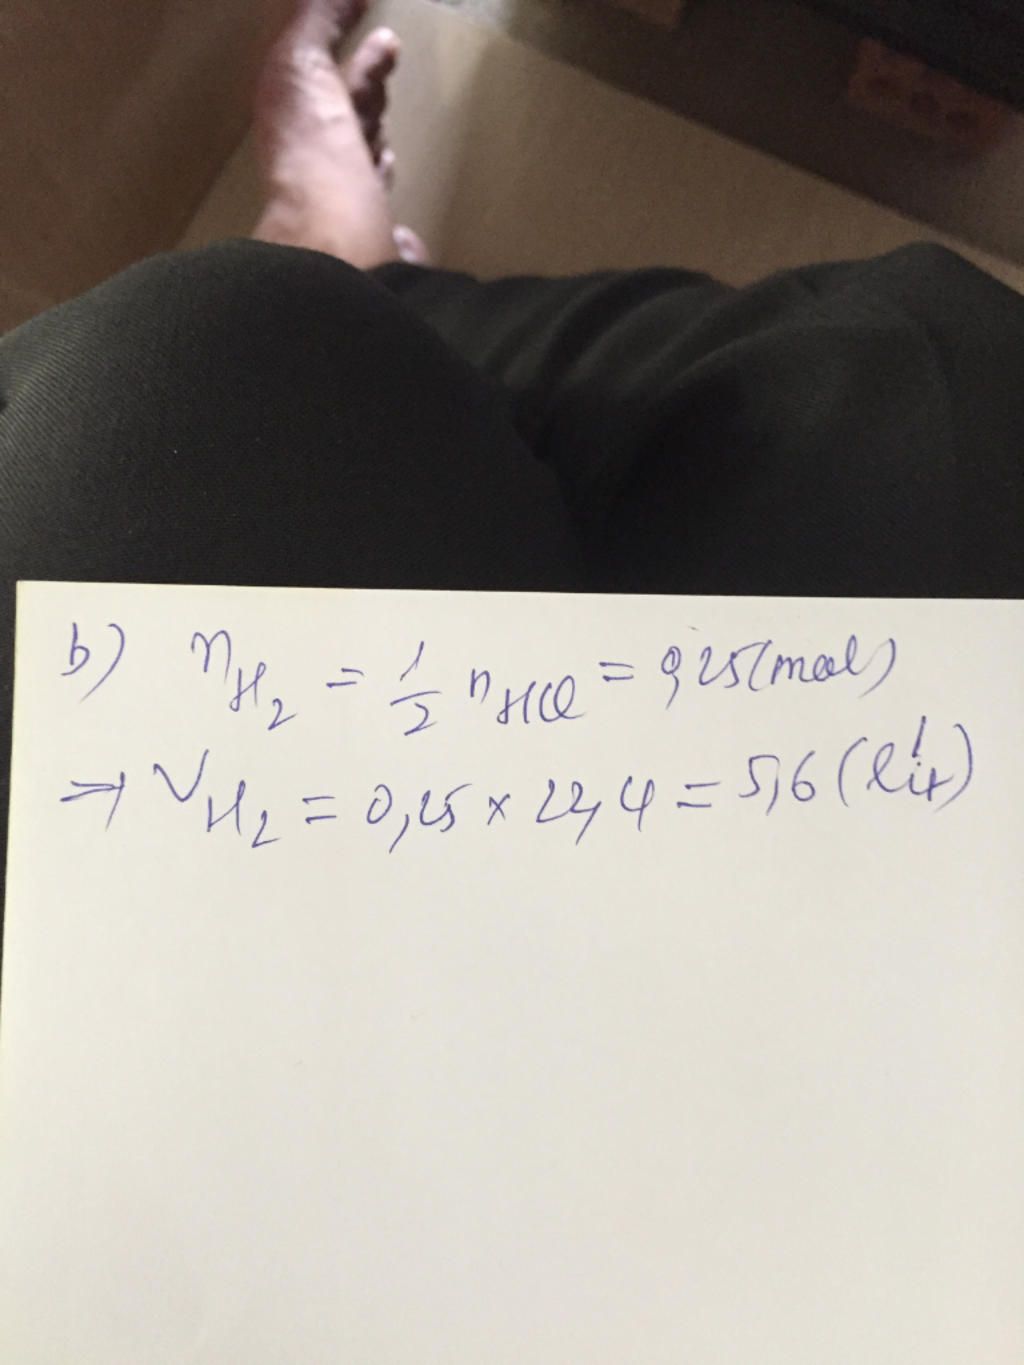 b) nH2 = 1/2 nHCl = 0,25 (mol)
=> VH2 = 0,25 x 22,4 = 5,6 (lít)